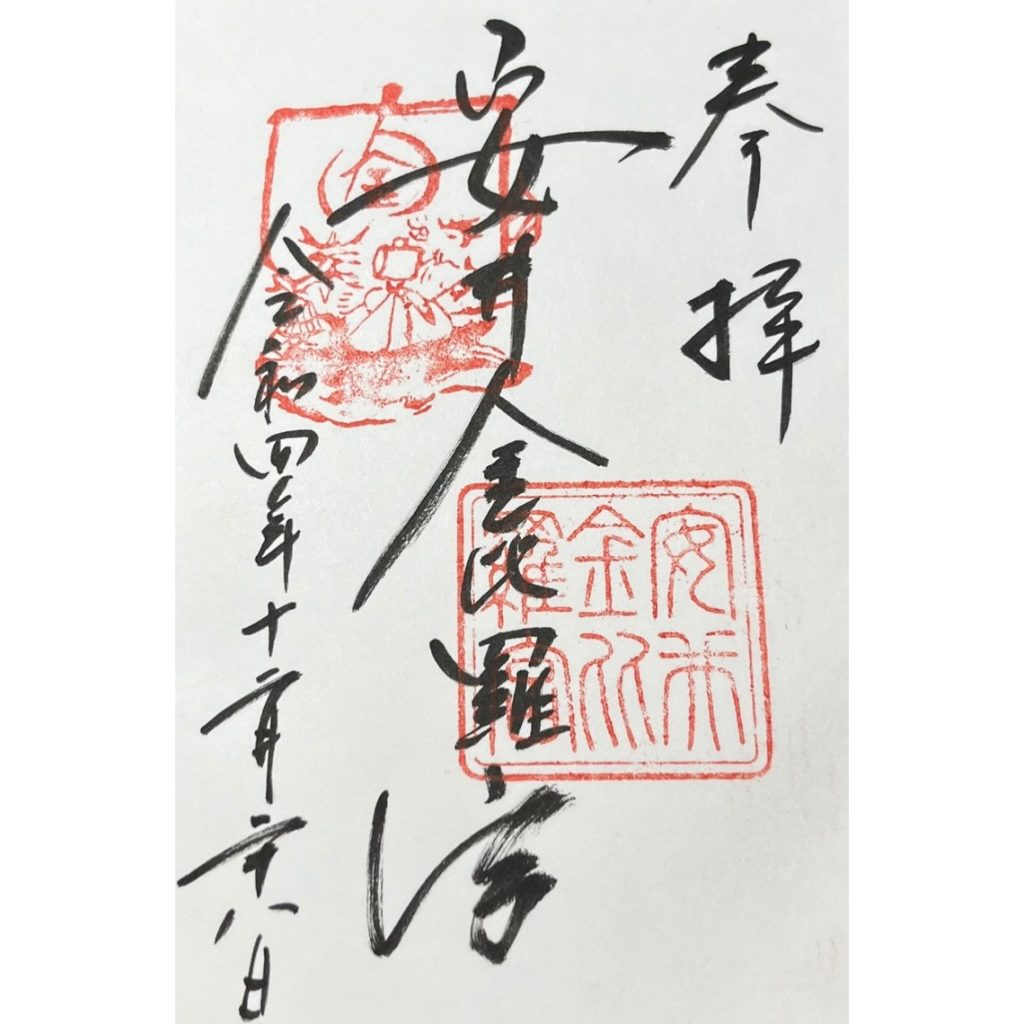 奉拝
安井金比羅宮
令和四年十二月二十八日
金
安井
金比
羅宮